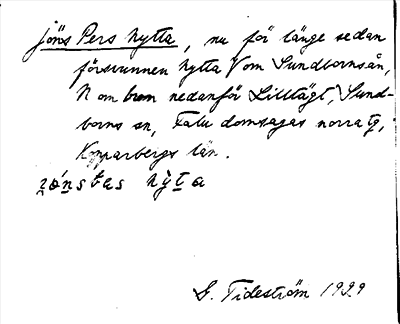 Jöns Pers hytta, nu för länge sedan
försvunnen hytta V om Sundbornsån,
N om bron nedanför Lilltägt, Sund-
borns sn, Falu domsagas norra tg,
Kopparbergs län.
hyta
G. Tideström 1929